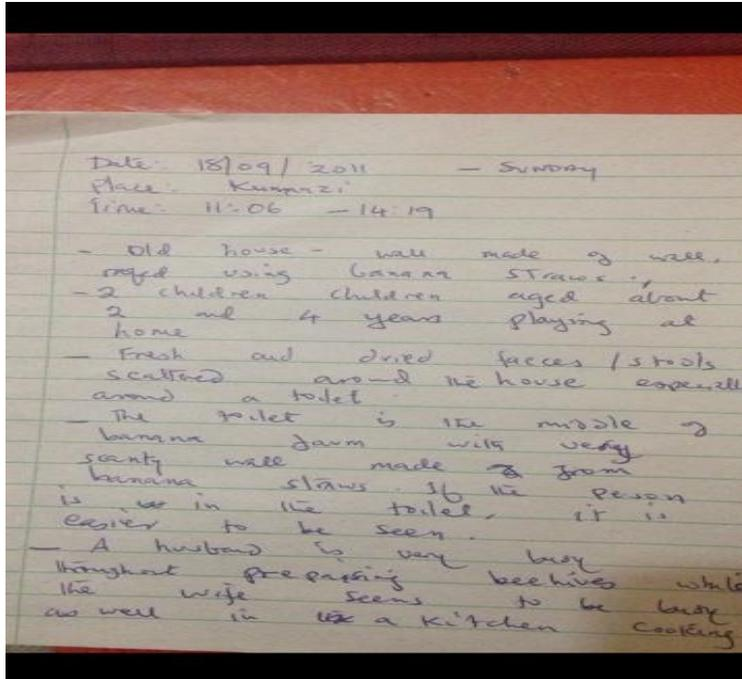 Date: 18/09/2011 — SUNDAY
Place: Kumnazi
Time: 11:06 — 14:19
- Old house - wall made of wall,
roofed using banana straws.,
- 2 children children aged about
2 and 4 years playing at
home
- Fresh and dried faeces / stools
scattered around the house especiall
around a toilet.
- The toilet is the middle of
banana farm with very
scanty wall made from
banana straws. If the person
is in the toilet, it is
easier to be seen.
- A husband is very busy
throughout preparing beehives while
the wife seems to be busy
as well in a kitchen cooking